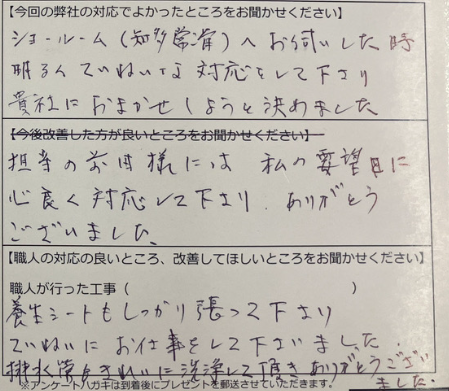 【今回の弊社の対応でよかったところをお聞かせください】
ショールーム(知多常滑)へお伺いした時
明るくていねいな対応をして下さり
貴社におまかせしようと決めました
【今後改善した方が良いところをお聞かせください】
担当の 様には 私の要望 に
心良く対応して下さり ありがとう
ございました。
【職人の対応の良いところ、改善してほしいところをお聞かせください】
職人が行った工事( )
養生シートもしっかり張って下さり
ていねいにお仕事をして下さいました.
排水管もきれいに洗浄して頂きありがとうござい
ました
※アンケートハガキは到着後にプレゼントを郵送させていただきます。